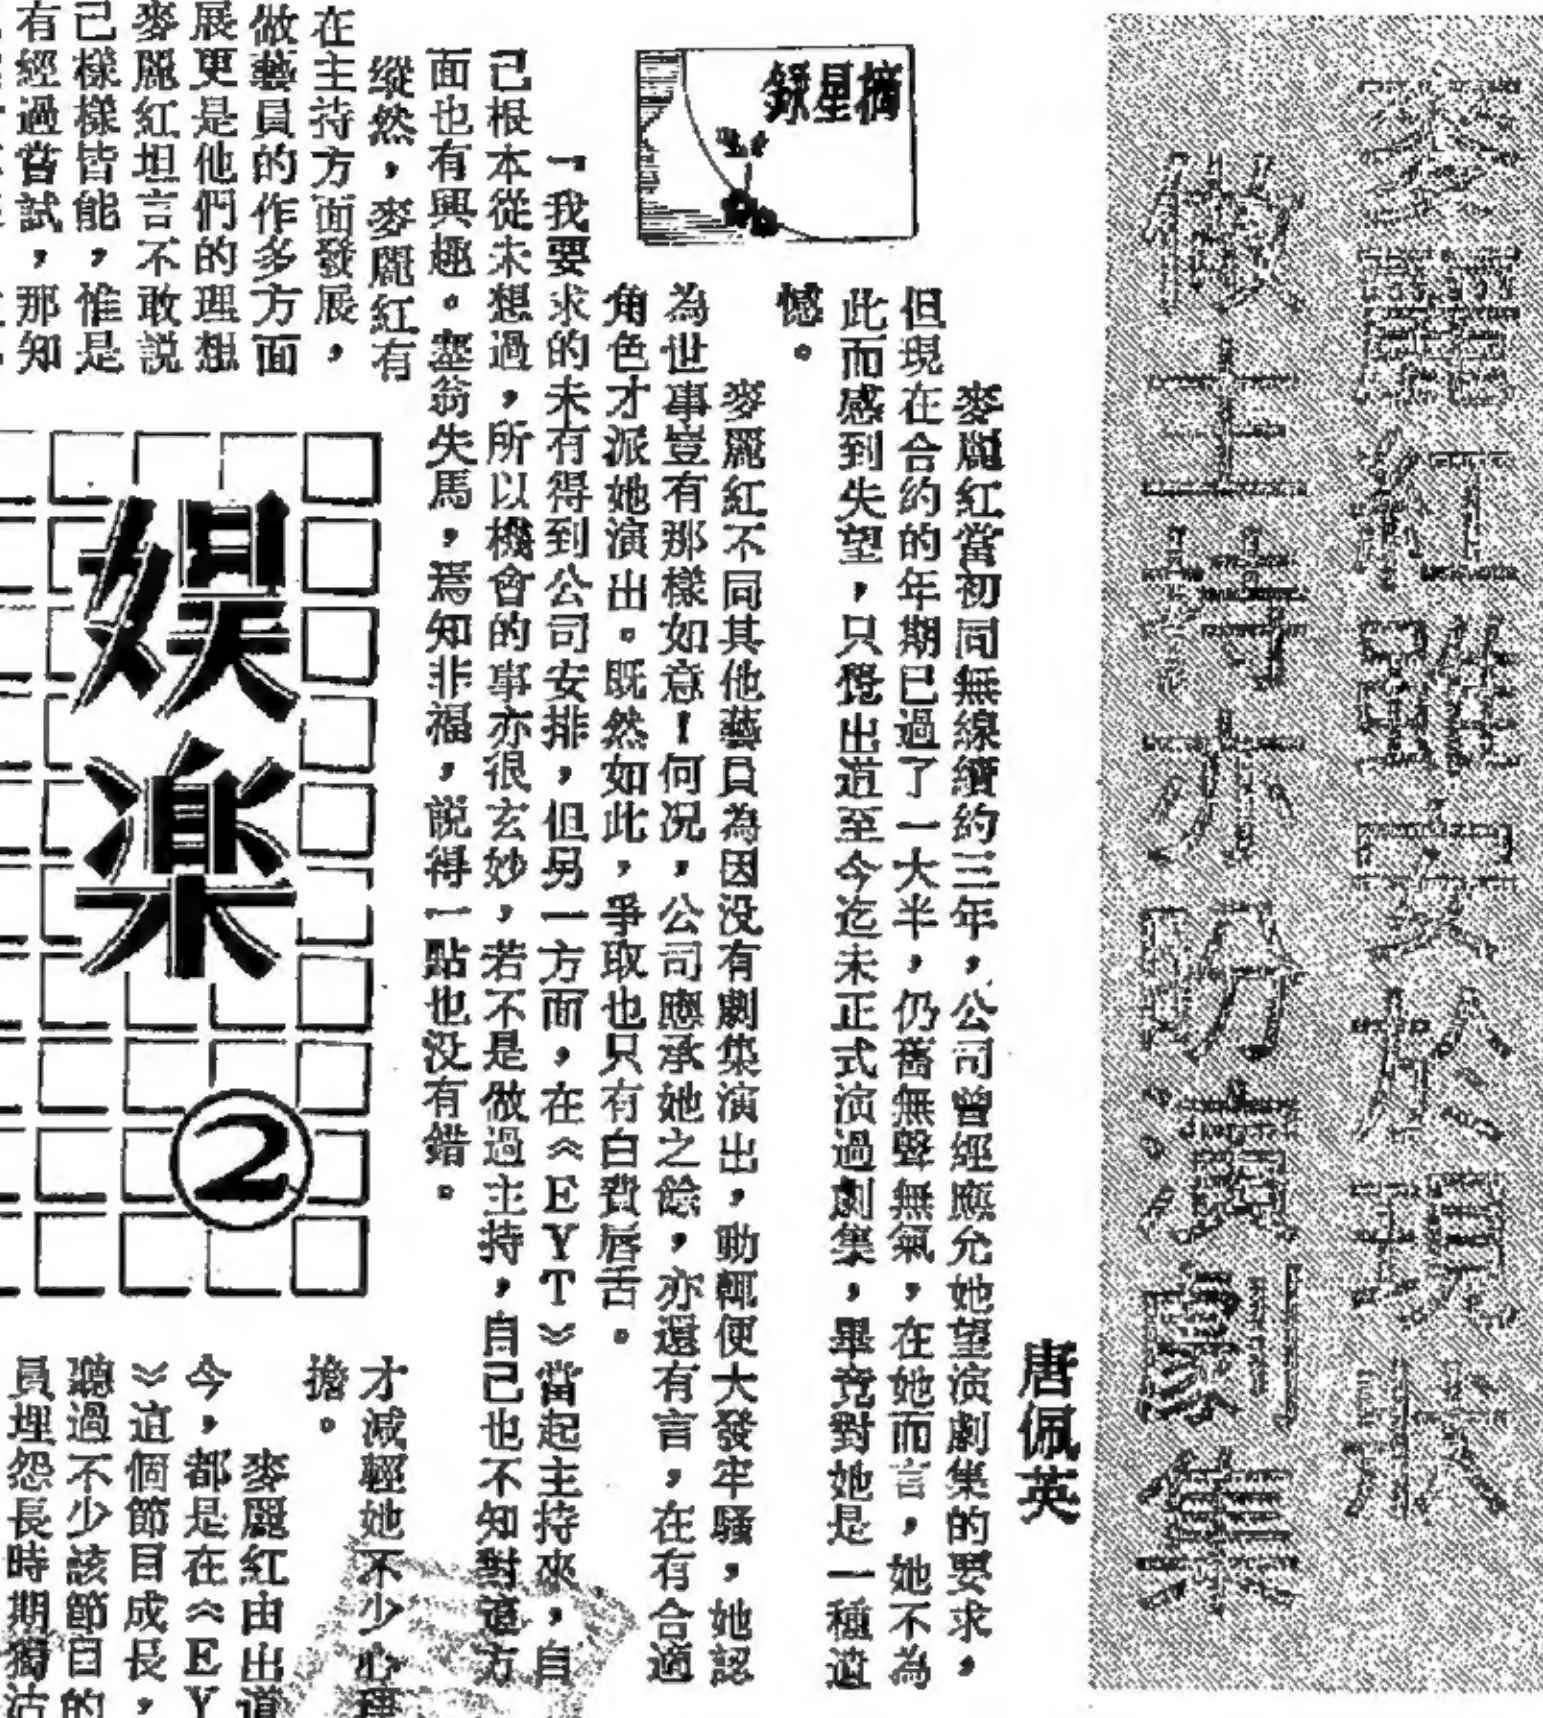 麥麗紅雖安於現狀
做主持亦盼演劇集
唐佩英
麥麗紅當初同無線續約三年，公司曾經應允她望演劇集的要求，
但現在合約的年期已過了一大半，仍舊無聲無氣，在她而言，她不為
此而感到失望，只覺出道至今迄未正式演過劇集，畢竟對她是一種遺
憾。
摘星錄
麥麗紅不同其他藝員為因没有劇集演出，動輒便大發牢騷，她認
為世事豈有那樣如意！何況，公司應承她之餘，亦還有言，在有合適
角色才派她演出。既然如此，爭取也只有白費唇舌。
「我要求的未有得到公司安排，但另一方面，在《EYT》當起主持來，自
己根本從未想過，所以機會的事亦很玄妙，若不是做過主持，自己也不知對這方
面也有興趣。塞翁失馬，焉知非福，說得一點也没有錯。
縱然，麥麗紅有
在主持方面發展，
做藝員的作多方面
展更是他們的理想
麥麗紅坦言不敢説
己樣樣皆能，惟是
有經過嘗試，那知
娛樂
②
才減輕她不少心理
擔。
麥麗紅由出道
今，都是在《EY
》這個節目成長，
聽過不少該節目的
員埋怨長時期獨沽